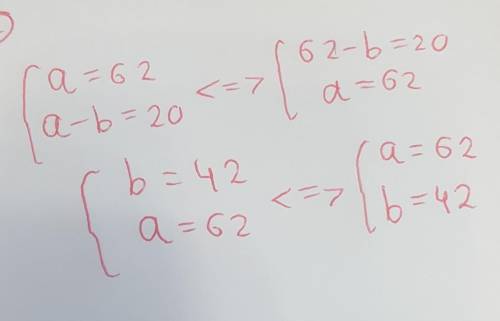 { a = 62 <=> { 62 - b = 20
a - b = 20 a = 62
{ b = 42 <=> { a = 62
a = 62 b = 42